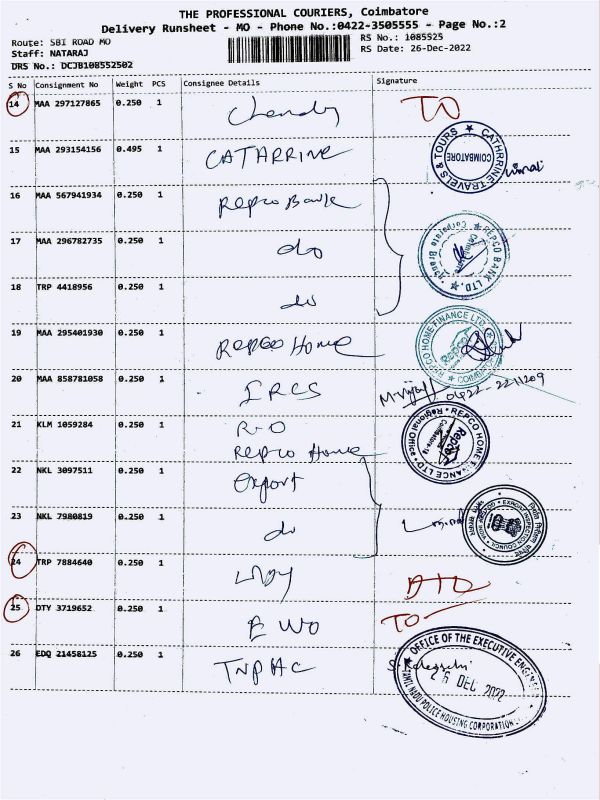 THE PROFESSIONAL COURIERS, Coimbatore
Delivery Runsheet - MO - Phone No.:0422-3505555 - Page No.:2
Route: SBI ROAD MO
RS No.: 1085525
Staff: NATARAJ
RS Date: 26-Dec-2022
DRS No.: DCJB108552502
S No Consignment No Weight PCS Consignee Details Signature
14 MAA 297127865 0.250 1 TO
15 MAA 293154156 0.495 1 CATARRINE
CATHRRINE TRAVELS & TOURS COIMBATORE
16 MAA 567941934 0.250 1 Repco Bank
17 MAA 296782735 0.250 1 do
REPCO BANK LTD. Corporate Branch
18 TRP 4418956 0.250 1 do
19 MAA 295401930 0.250 1 REPCO Home
REPCO HOME FINANCE LTD. REPCO COIMBATORE
20 MAA 858781058 0.250 1 IRCS
0422-2211209
21 KLM 1059284 0.250 1 R-O
Repco Home
REPCO HOME FINANCE LTD Regional Office REPCO
22 NKL 3097511 0.250 1 Export
23 NKL 7980819 0.250 1 do
EXPORT INSPECTION COUNCIL
24 TRP 7884640 0.250 1
25 DTY 3719652 0.250 1 E WO TO
26 EDQ 21458125 0.250 1 TNPHC
OFFICE OF THE EXECUTIVE ENGINEER
26 DEC 2022
TAMIL NADU POLICE HOUSING CORPORATION